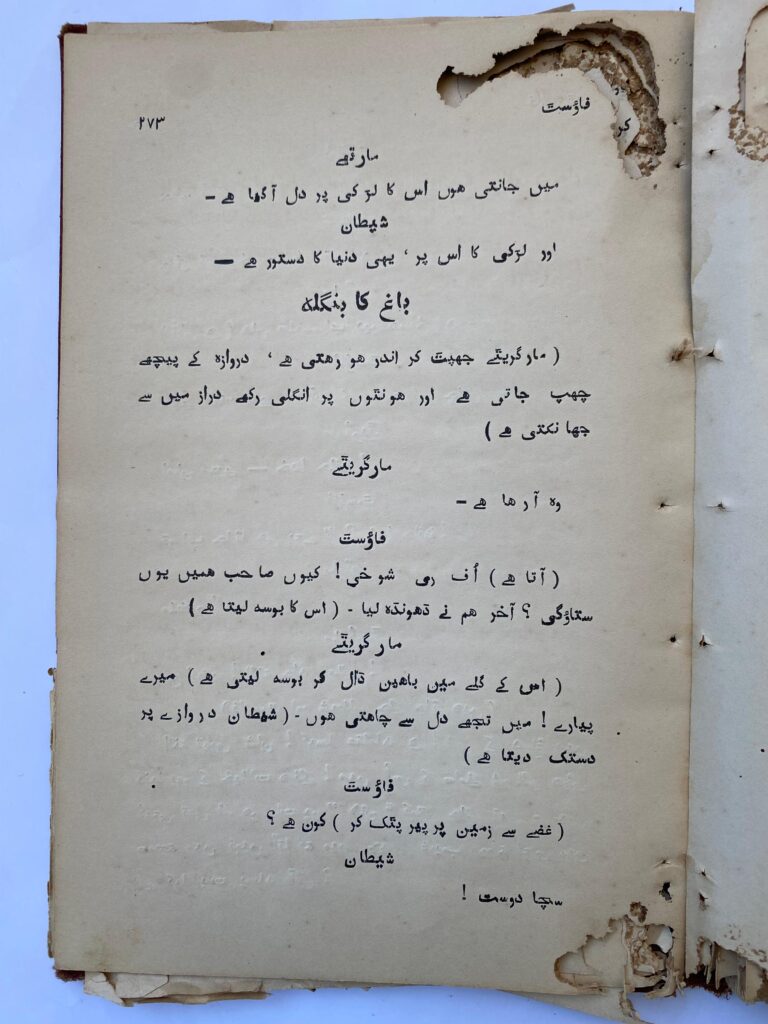 فاؤست
۲۷۳
مارتھے
میں جانتی ہوں اس کا لڑکی پر دل آگیا ہے۔
شیطان
اور لڑکی کا اس پر، یہی دنیا کا دستور ہے —
باغ کا بنگلہ
( مارگریٹے جھپٹ کر اندر ہو رہتی ہے، دروازہ کے پیچھے
چھپ جاتی ہے اور ہونٹوں پر انگلی رکھے دراز میں سے
جھانکتی ہے )
مارگریٹے
وہ آرہا ہے۔
فاؤسٹ
( آتا ہے ) اُف ری شوخی! کیوں صاحب ہمیں یوں
ستاؤگی ؟ آخر ہم نے ڈھونڈہ لیا - ( اس کا بوسہ لیتا ہے )
مارگریٹے
( اس کے گلے میں باہیں ڈال کر بوسہ لیتی ہے ) میرے
پیارے! میں تجھے دل سے چاہتی ہوں - ( شیطان دروازے پر
دستک دیتا ہے )
فاؤسٹ
( غصے سے زمین پر پیر پٹک کر ) کون ہے ؟
شیطان
سچا دوست !
کر